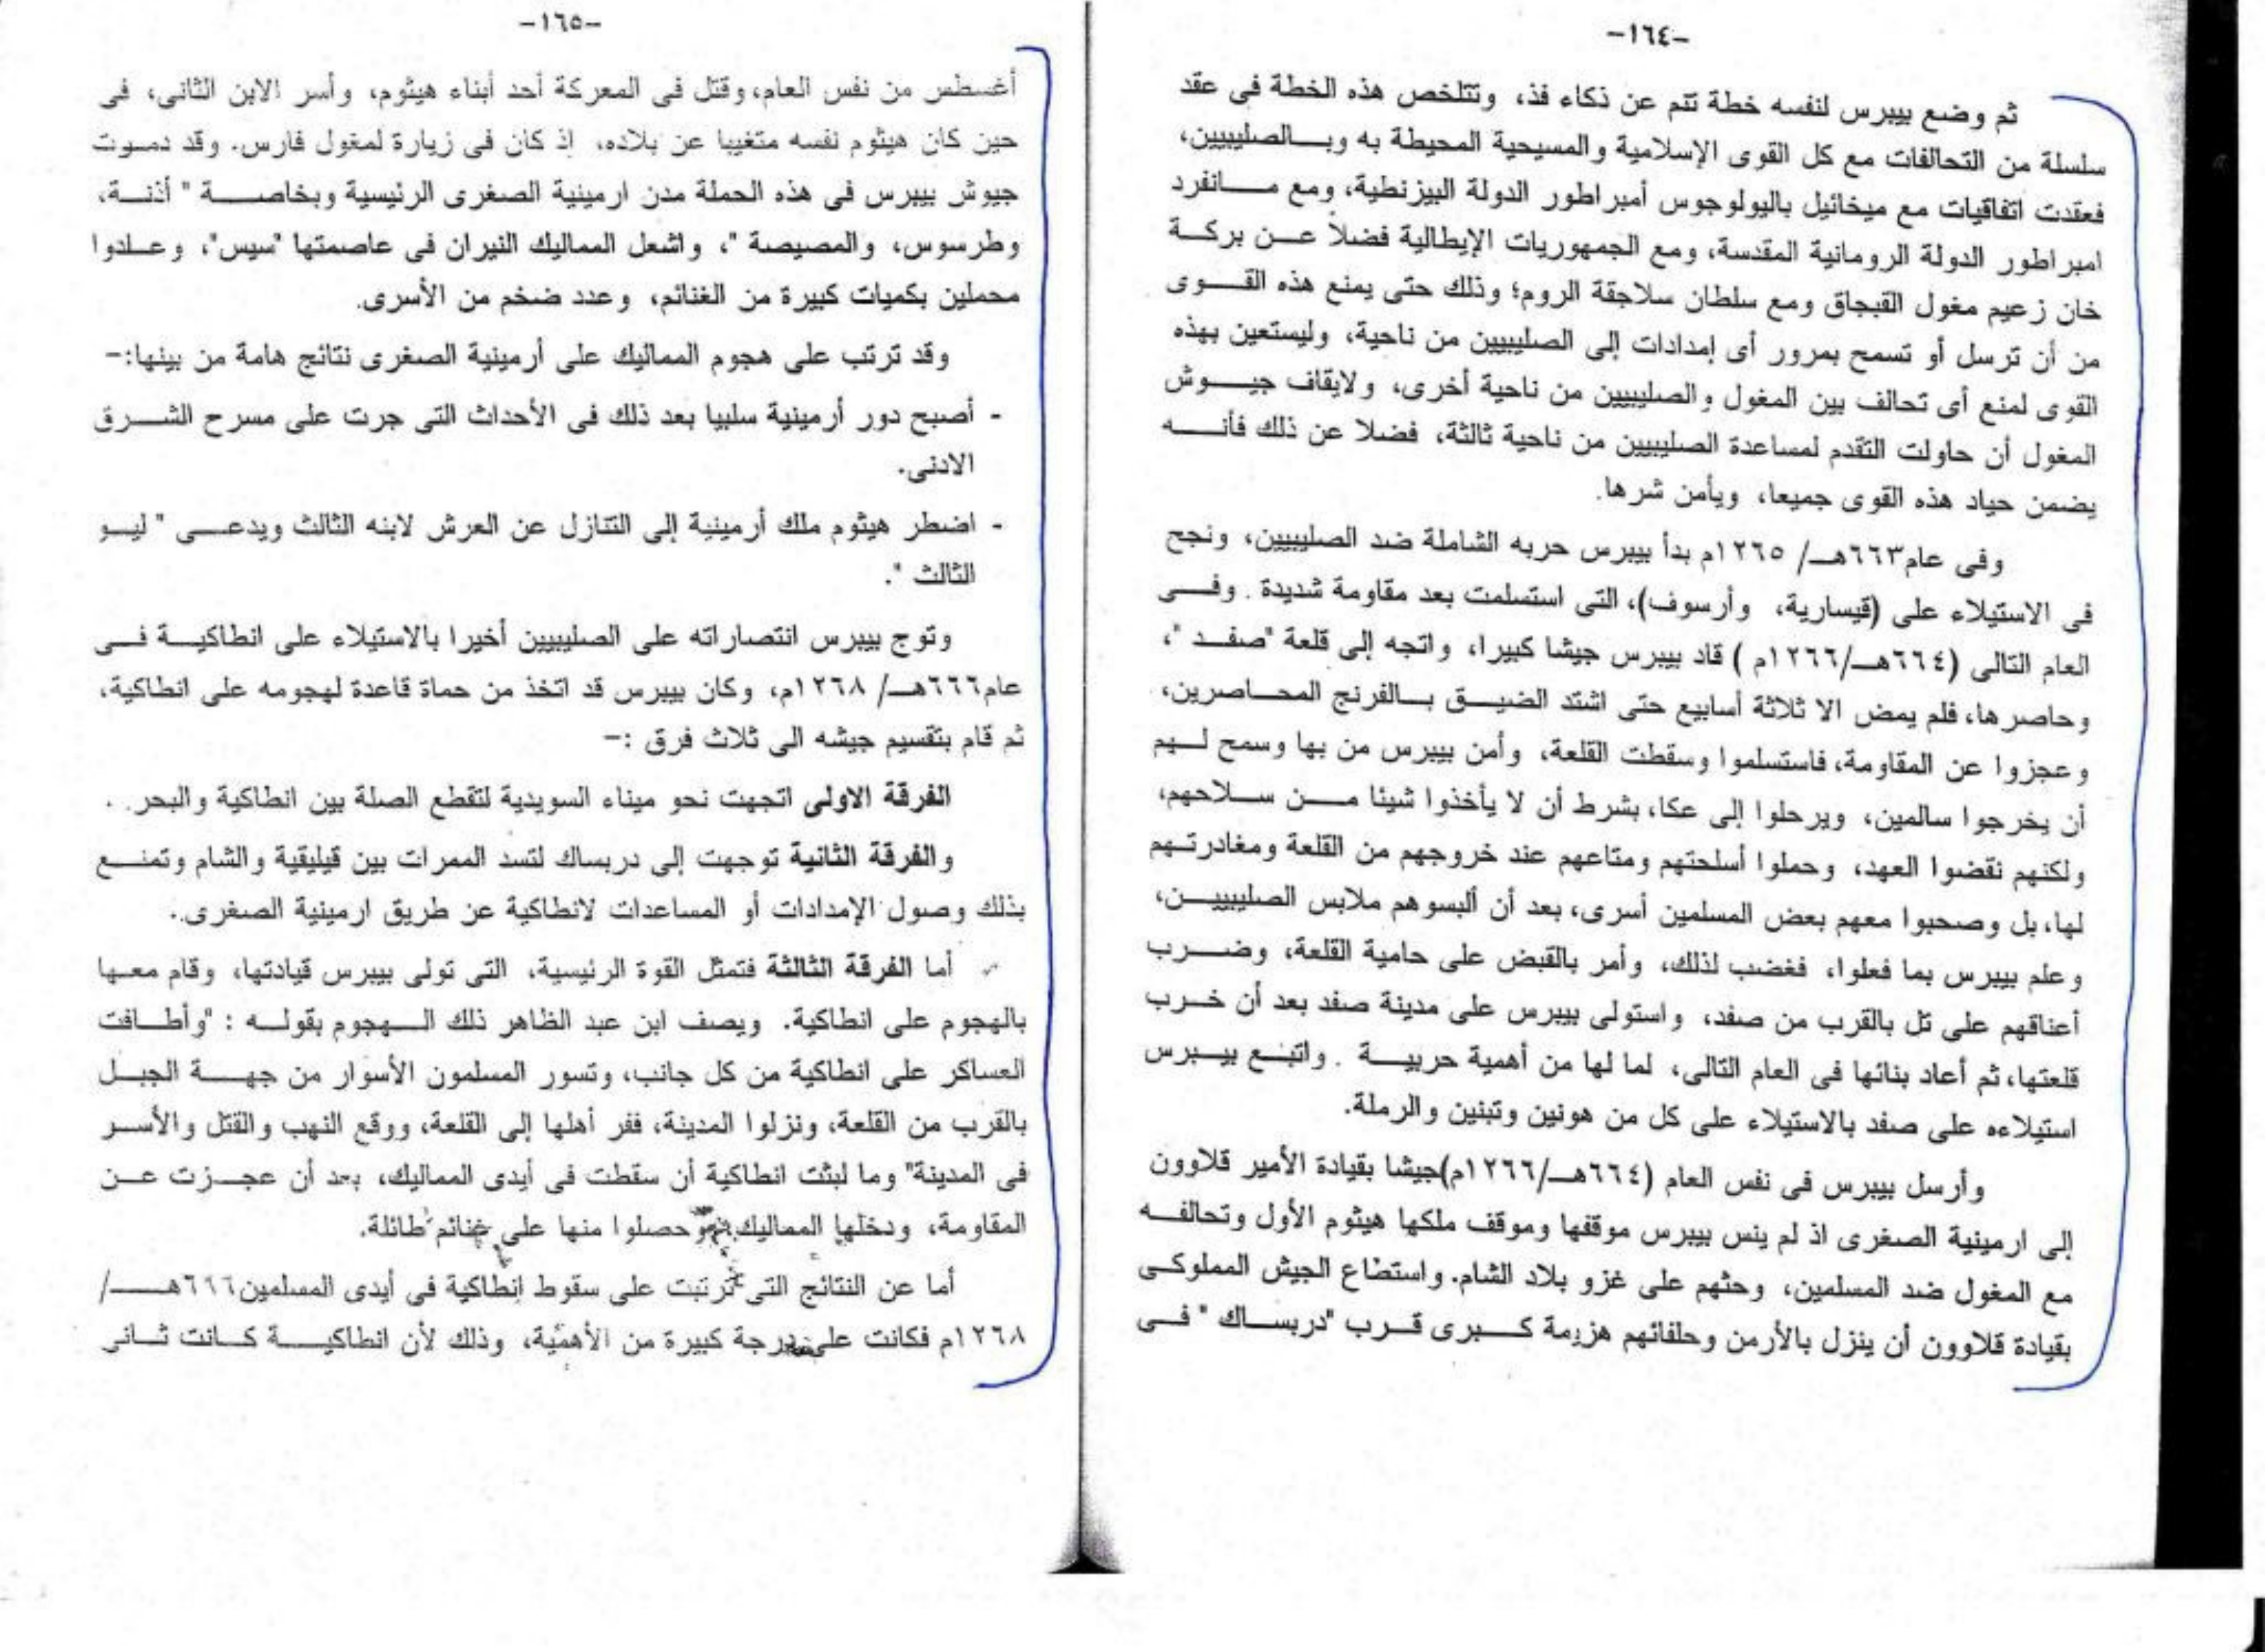 -١٦٤-
ثم وضع بيبرس لنفسه خطة تنم عن ذكاء فذ، وتتلخص هذه الخطة فى عقد
سلسلة من التحالفات مع كل القوى الإسلامية والمسيحية المحيطة به وبالصليبيين،
فعقدت اتفاقيات مع ميخائيل باليولوجوس أمبراطور الدولة البيزنطية، ومع مانفرد
امبراطور الدولة الرومانية المقدسة، ومع الجمهوريات الإيطالية فضلاً عن بركة
خان زعيم مغول القبجاق ومع سلطان سلاجقة الروم؛ وذلك حتى يمنع هذه القوى
من أن ترسل أو تسمح بمرور أى إمدادات إلى الصليبيين من ناحية، وليستعين بهذه
القوى لمنع أى تحالف بين المغول والصليبيين من ناحية أخرى، ولايقاف جيوش
المغول أن حاولت التقدم لمساعدة الصليبيين من ناحية ثالثة، فضلا عن ذلك فأنه
يضمن حياد هذه القوى جميعا، ويأمن شرها.
وفى عام٦٦٣هـ/ ١٢٦٥م بدأ بيبرس حربه الشاملة ضد الصليبيين، ونجح
فى الاستيلاء على (قيسارية، وأرسوف)، التى استسلمت بعد مقاومة شديدة . وفى
العام التالى (٦٦٤هـ/١٢٦٦م ) قاد بيبرس جيشا كبيرا، واتجه إلى قلعة "صفد "،
وحاصرها، فلم يمض الا ثلاثة أسابيع حتى اشتد الضيق بالفرنج المحاصرين،
وعجزوا عن المقاومة، فاستسلموا وسقطت القلعة، وأمن بيبرس من بها وسمح لهم
أن يخرجوا سالمين، ويرحلوا إلى عكا، بشرط أن لا يأخذوا شيئا من سلاحهم،
ولكنهم نقضوا العهد، وحملوا أسلحتهم ومتاعهم عند خروجهم من القلعة ومغادرتهم
لها، بل وصحبوا معهم بعض المسلمين أسرى، بعد أن ألبسوهم ملابس الصليبيين،
وعلم بيبرس بما فعلوا، فغضب لذلك، وأمر بالقبض على حامية القلعة، وضرب
أعناقهم على تل بالقرب من صفد، واستولى بيبرس على مدينة صفد بعد أن خرب
قلعتها، ثم أعاد بنائها فى العام التالى، لما لها من أهمية حربية . واتبع بيبرس
استيلاءه على صفد بالاستيلاء على كل من هونين وتبنين والرملة.
وأرسل بيبرس فى نفس العام (٦٦٤هـ/١٢٦٦م)جيشا بقيادة الأمير قلاوون
إلى ارمينية الصغرى اذ لم ينس بيبرس موقفها وموقف ملكها هيثوم الأول وتحالفه
مع المغول ضد المسلمين، وحثهم على غزو بلاد الشام. واستطاع الجيش المملوكى
بقيادة قلاوون أن ينزل بالأرمن وحلفائهم هزيمة كبرى قرب "دربساك " فى
-١٦٥-
أغسطس من نفس العام، وقتل فى المعركة أحد أبناء هيثوم، وأسر الابن الثانى، فى
حين كان هيثوم نفسه متغيبا عن بلاده، إذ كان فى زيارة لمغول فارس. وقد دمرت
جيوش بيبرس فى هذه الحملة مدن ارمينية الصغرى الرئيسية وبخاصة " أذنة،
وطرسوس، والمصيصة "، واشعل المماليك النيران فى عاصمتها "سيس"، وعادوا
محملين بكميات كبيرة من الغنائم، وعدد ضخم من الأسرى.
وقد ترتب على هجوم المماليك على أرمينية الصغرى نتائج هامة من بينها:-
- أصبح دور أرمينية سلبيا بعد ذلك فى الأحداث التى جرت على مسرح الشرق
الادنى.
- اضطر هيثوم ملك أرمينية إلى التنازل عن العرش لابنه الثالث ويدعى " ليو
الثالث ".
وتوج بيبرس انتصاراته على الصليبيين أخيرا بالاستيلاء على انطاكية فى
عام٦٦٦هـ/ ١٢٦٨م، وكان بيبرس قد اتخذ من حماة قاعدة لهجومه على انطاكية،
ثم قام بتقسيم جيشه الى ثلاث فرق :-
الفرقة الاولى اتجهت نحو ميناء السويدية لتقطع الصلة بين انطاكية والبحر .
والفرقة الثانية توجهت إلى دربساك لتسد الممرات بين قيليقية والشام وتمنع
بذلك وصول الإمدادات أو المساعدات لانطاكية عن طريق ارمينية الصغرى.
أما الفرقة الثالثة فتمثل القوة الرئيسية، التى تولى بيبرس قيادتها، وقام معها
بالهجوم على انطاكية. ويصف ابن عبد الظاهر ذلك الهجوم بقوله : "وأطافت
العساكر على انطاكية من كل جانب، وتسور المسلمون الأسوار من جهة الجبل
بالقرب من القلعة، ونزلوا المدينة، ففر أهلها إلى القلعة، ووقع النهب والقتل والأسر
فى المدينة" وما لبثت انطاكية أن سقطت فى أيدى المماليك، بعد أن عجزت عن
المقاومة، ودخلها المماليك حصلوا منها على غنائم طائلة.
أما عن النتائج التى ترتبت على سقوط إنطاكية فى أيدى المسلمين٦٦٦هـ/
١٢٦٨م فكانت على درجة كبيرة من الأهمية، وذلك لأن انطاكية كانت ثانى